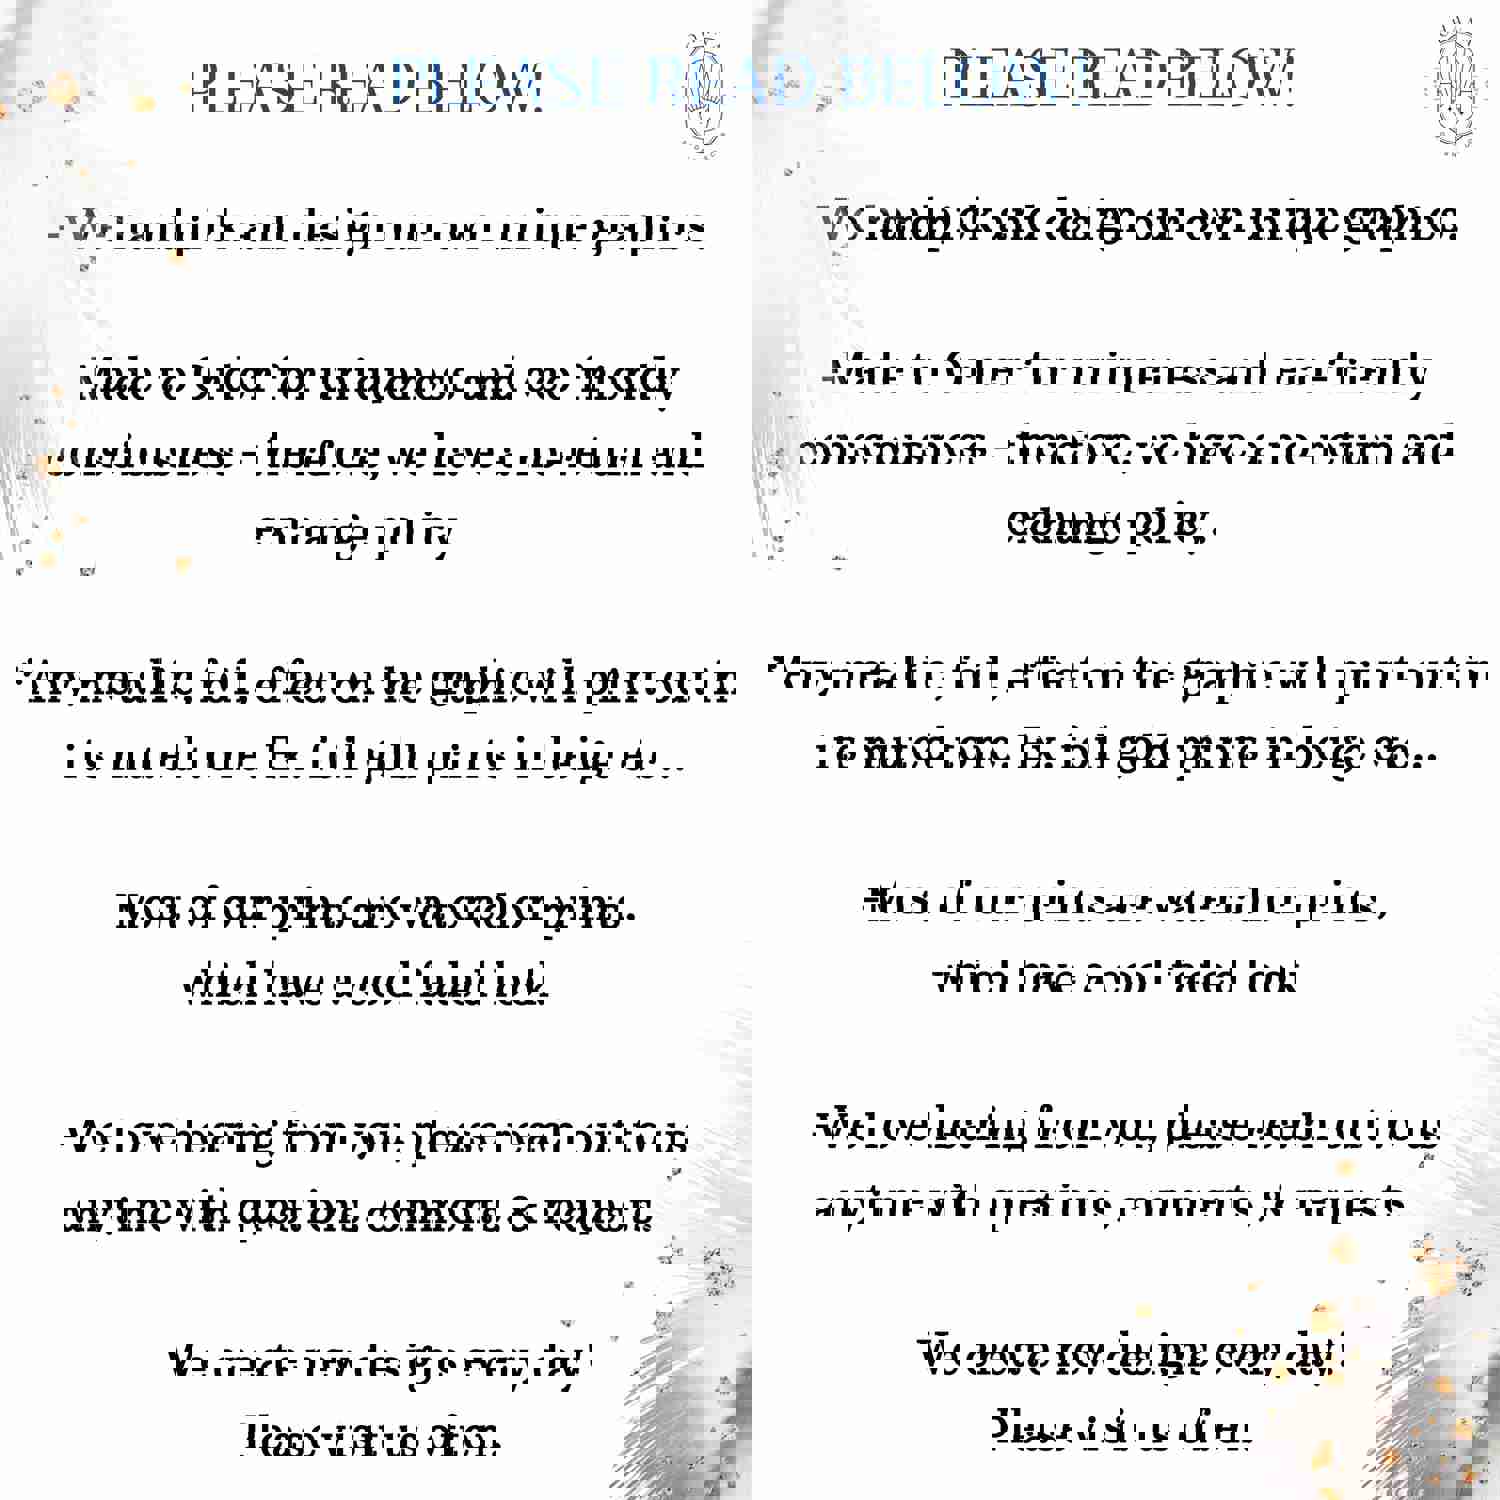 PLEASE READ BELOW!
- We handpick and design our own unique graphics.
-Made to Order for uniqueness and eco-friendly
consciousness - therefore, we have a no-return and
exchange policy.
*Any metallic, foil, effect on the graphic will print out in
its muted tone. Ex. foil gold prints in beige etc...
-Most of our prints are watercolor prints,
which have a cool faded look
-We love hearing from you, please reach out to us
anytime with questions, comments, & requests.
We create new designs every day!
Please visit us often.
PLEASE READ BELOW!
We handpick and design our own unique graphics.
-Made to Order for uniqueness and eco-friendly
consciousness - therefore, we have a no-return and
exchange policy.
*Any metallic, foil, effect on the graphic will print out in
its muted tone. Ex. foil gold prints in beige etc...
-Most of our prints are watercolor prints,
which have a cool faded look
-We love hearing from you, please reach out to us
anytime with questions, comments, & requests.
We create new designs every day!
Please visit us often.
PLEASE READ BELOW!